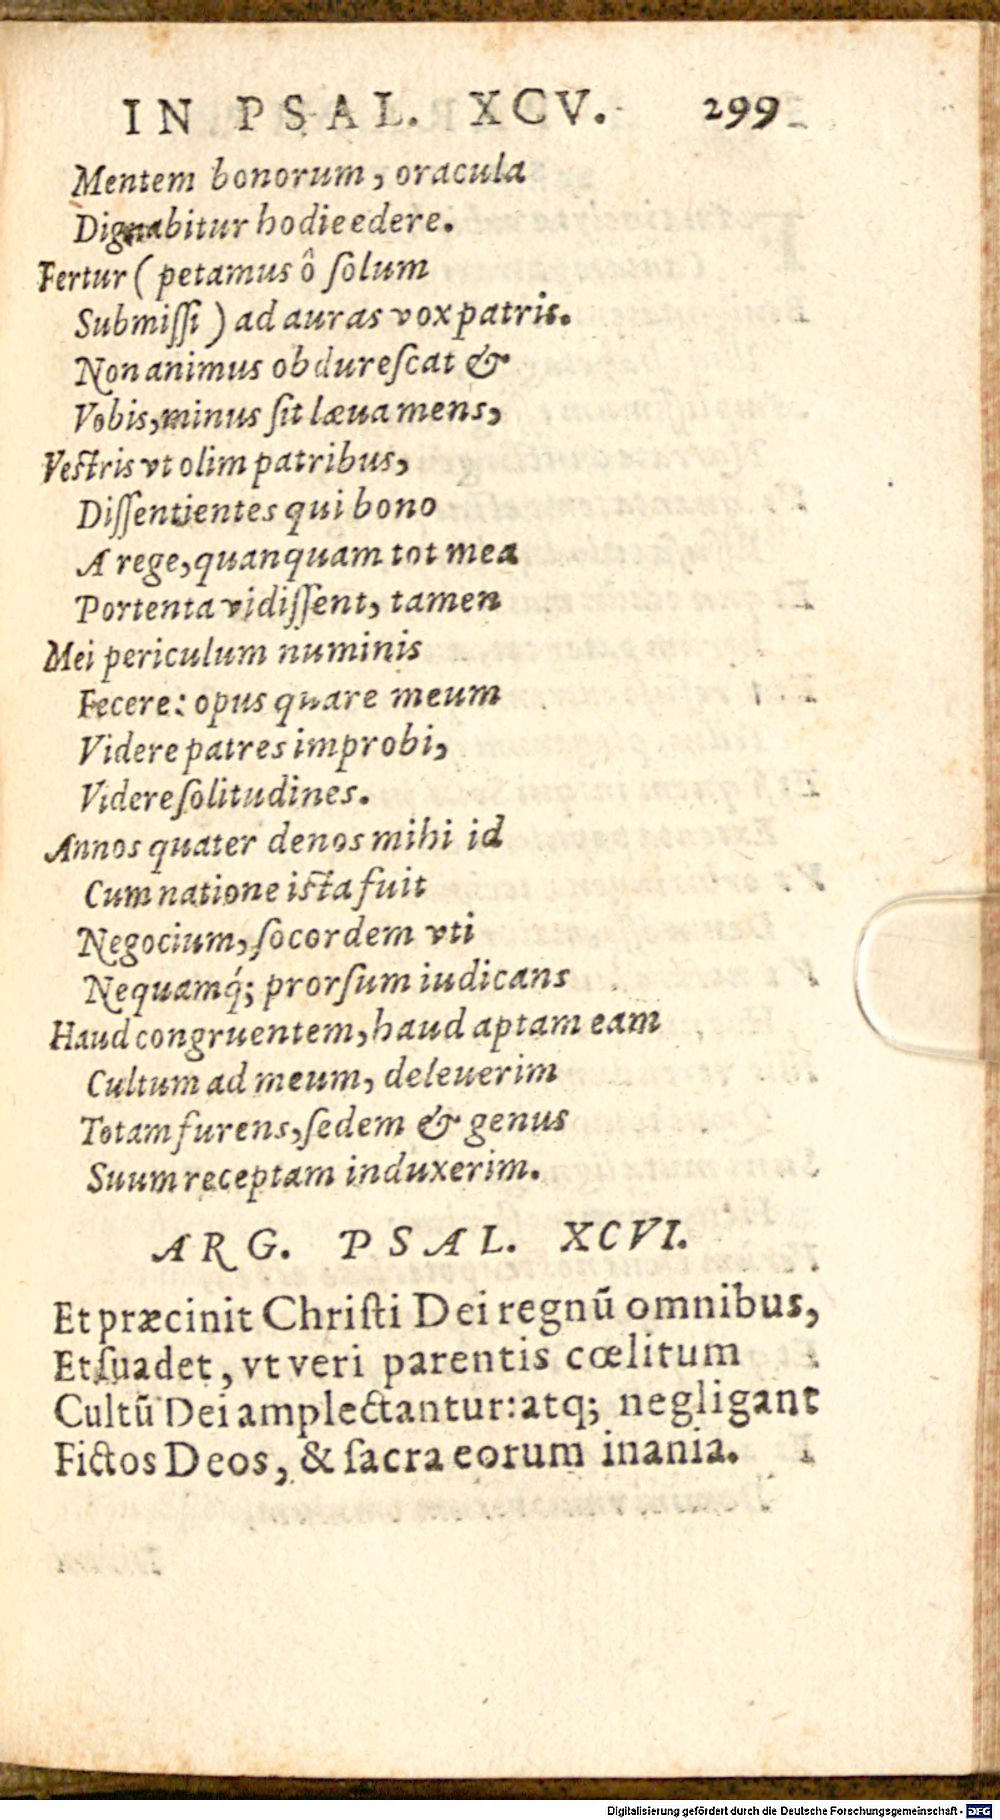 IN PSAL. XCV. 299
Mentem bonorum, oracula
Dignabitur hodie edere.
Fertur (petamus ô ſolum
Submiſſi) ad auras vox patris.
Non animus obdureſcat &
Vobis, minus ſit læua mens,
Veſtris vt olim patribus,
Diſſentientes qui bono
A rege, quanquam tot mea
Portenta vidiſſent, tamen
Mei periculum numinis
Fecere: opus quare meum
Videre patres improbi,
Videre ſolitudines.
Annos quater denos mihi id
Cum natione iſta fuit
Negocium, ſocordem vti
Nequamq́; prorſum iudicans
Haud congruentem, haud aptam eam
Cultum ad meum, deleuerim
Totam furens, ſedem & genus
Suum receptam induxerim.
ARG. PSAL. XCVI.
Et præcinit Chriſti Dei regnũ omnibus,
Et ſuadet, vt veri parentis cœlitum
Cultũ Dei amplectantur: atq; negligant
Fictos Deos, & ſacra eorum inania.
Digitalisierung gefördert durch die Deutsche Forschungsgemeinschaft - DFG